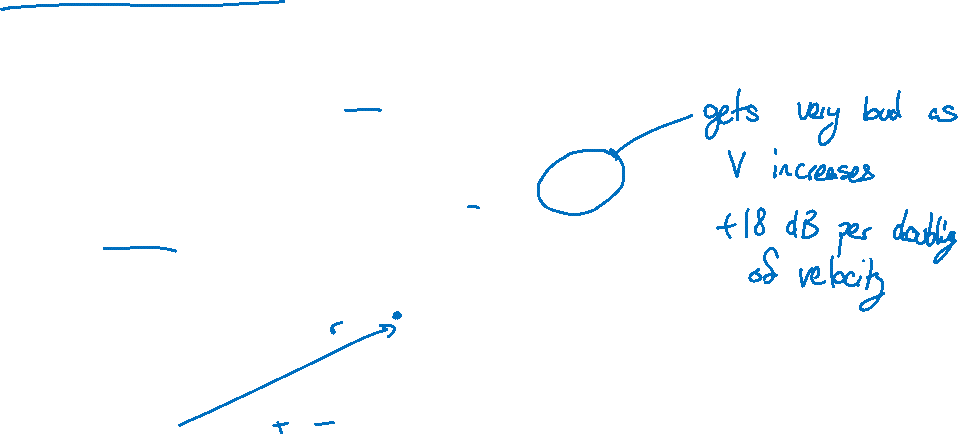 gets very loud as
V increases
+18 dB per doubling
of velocity
r
+ -